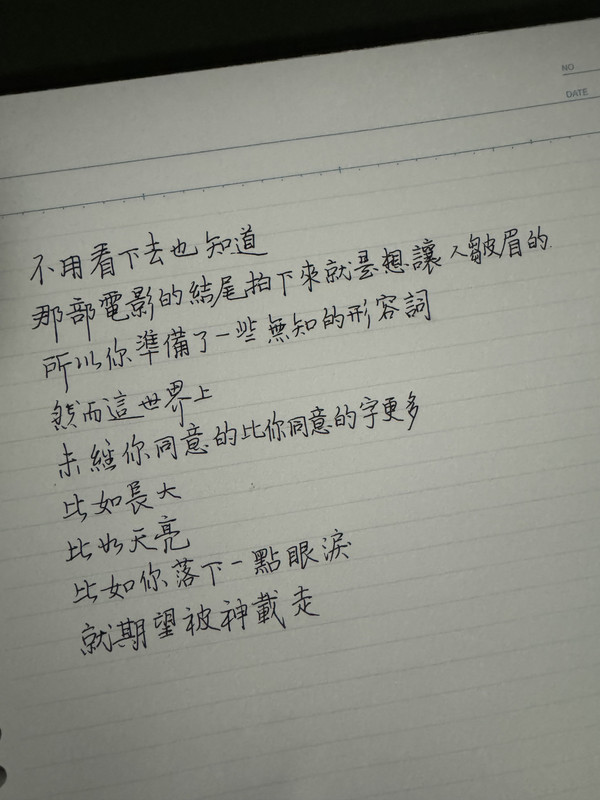 NO
DATE
不用看下去也知道
那部電影的結尾拍下來就是想讓人皺眉的
所以你準備了一些無知的形容詞
然而這世界上
未經你同意的比你同意的字更多
比如長大
比如天亮
比如你落下一點眼淚
就期望被神載走